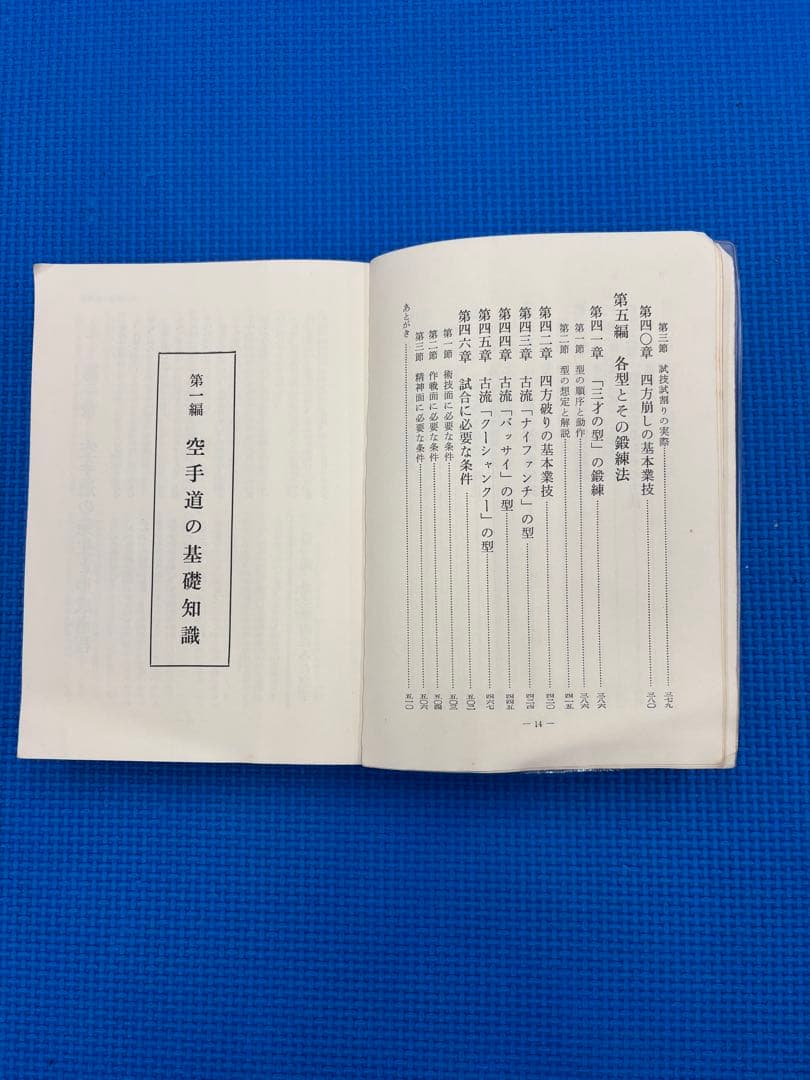 第三節 試技試割りの実際……三七九
第四〇章 四方崩しの基本業技……三八〇
第五編 各型とその鍛練法
第四一章 「三才の型」の鍛練……三八六
第一節 型の順序と動作……三八六
第二節 型の想定と解説……四一五
第四二章 四方破りの基本業技……四二〇
第四三章 古流「ナイファンチ」の型……四二四
第四四章 古流「バッサイ」の型……四四五
第四五章 古流「クーシャンクー」の型……四六七
第四六章 試合に必要な条件……五〇二
第一節 術技面に必要な条件……五〇三
第二節 作戦面に必要な条件……五〇四
第三節 精神面に必要な条件……五〇六
あとがき……五一〇
― 14 ―
第一編 空手道の基礎知識